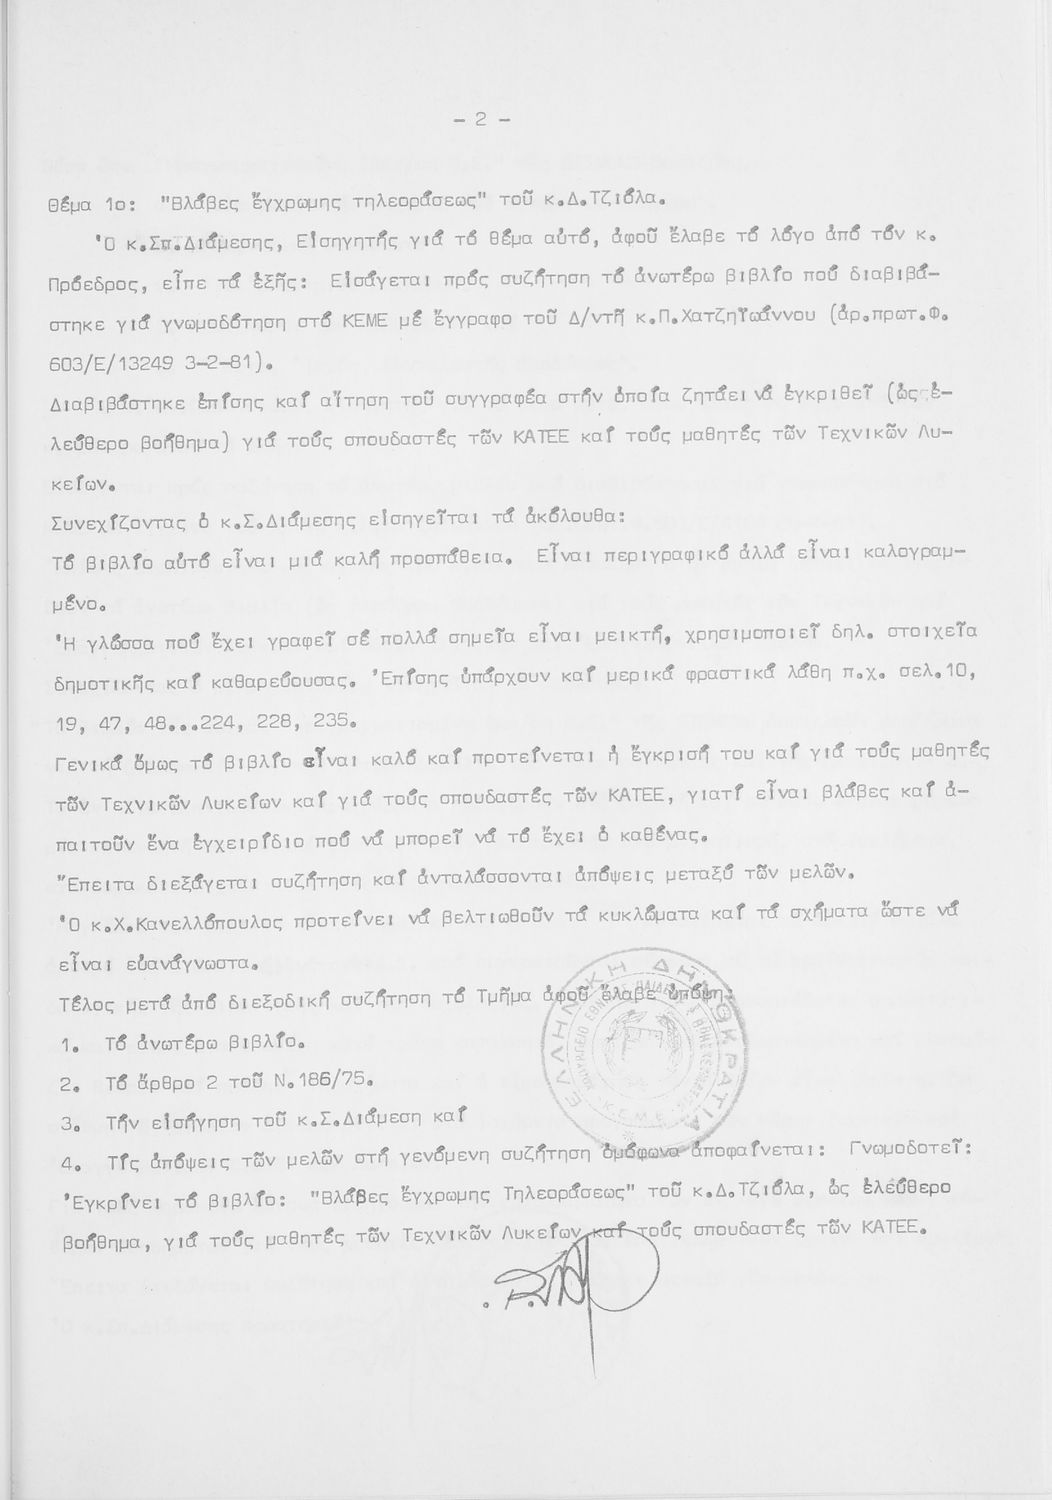 - 2 -
Θέμα 1ο: "Βλάβες ἔγχρωμης τηλεοράσεως" τοῦ κ.Δ.Τζιόλα.
Ὁ κ.Σπ.Διάμεσης, Εἰσηγητής γιά τό θέμα αὐτό, ἀφοῦ ἔλαβε τό λόγο ἀπό τόν κ.
Πρόεδρος, εἶπε τά ἑξῆς: Εἰσάγεται πρός συζήτηση τό ἀνωτέρω βιβλίο πού διαβιβά-
στηκε γιά γνωμοδότηση στό ΚΕΜΕ μέ ἔγγραφο τοῦ Δ/ντῆ κ.Π.Χατζηϊωάννου (ἀρ.πρωτ.Φ.
603/Ε/13249 3-2-81).
Διαβιβάστηκε ἐπίσης καί αἴτηση τοῦ συγγραφέα στήν ὁποία ζητάει νά ἐγκριθεῖ (ὡς ἐ-
λεύθερο βοήθημα) γιά τούς σπουδαστές τῶν ΚΑΤΕΕ καί τούς μαθητές τῶν Τεχνικῶν Λυ-
κείων.
Συνεχίζοντας ὁ κ.Σ.Διάμεσης εἰσηγεῖται τά ἀκόλουθα:
Τό βιβλίο αὐτό εἶναι μιά καλή προσπάθεια. Εἶναι περιγραφικό ἀλλά εἶναι καλογραμ-
μένο.
Ἡ γλώσσα πού ἔχει γραφεῖ σέ πολλά σημεῖα εἶναι μεικτή, χρησιμοποιεῖ δηλ. στοιχεῖα
δημοτικῆς καί καθαρεύουσας. Ἐπίσης ὑπάρχουν καί μερικά φραστικά λάθη π.χ. σελ.10,
19, 47, 48...224, 228, 235.
Γενικά ὅμως τό βιβλίο εἶναι καλό καί προτείνεται ἡ ἔγκρισή του καί γιά τούς μαθητές
τῶν Τεχνικῶν Λυκείων καί γιά τούς σπουδαστές τῶν ΚΑΤΕΕ, γιατί εἶναι βλάβες καί ἀ-
παιτοῦν ἕνα ἐγχειρίδιο πού νά μπορεῖ νά τό ἔχει ὁ καθένας.
Ἔπειτα διεξάγεται συζήτηση καί ἀνταλάσσονται ἀπόψεις μεταξύ τῶν μελῶν.
Ὁ κ.Χ.Κανελλόπουλος προτείνει νά βελτιωθοῦν τά κυκλώματα καί τά σχήματα ὥστε νά
εἶναι εὐανάγνωστα.
Τέλος μετά ἀπό διεξοδική συζήτηση τό Τμῆμα ἀφοῦ ἔλαβε ὑπόψη:
1. Τό ἀνωτέρω βιβλίο.
2. Τό ἄρθρο 2 τοῦ Ν.186/75.
3. Τήν εἰσήγηση τοῦ κ.Σ.Διάμεση καί
4. Τίς ἀπόψεις τῶν μελῶν στή γενόμενη συζήτηση ὁμόφωνα ἀποφαίνεται: Γνωμοδοτεῖ:
Ἐγκρίνει τό βιβλίο: "Βλάβες ἔγχρωμης Τηλεοράσεως" τοῦ κ.Δ.Τζιόλα, ὡς ἐλεύθερο
βοήθημα, γιά τούς μαθητές τῶν Τεχνικῶν Λυκείων καί τούς σπουδαστές τῶν ΚΑΤΕΕ.
ΕΛΛΗΝΙΚΗ ΔΗΜΟΚΡΑΤΙΑ
Κ.Ε.Μ.Ε.